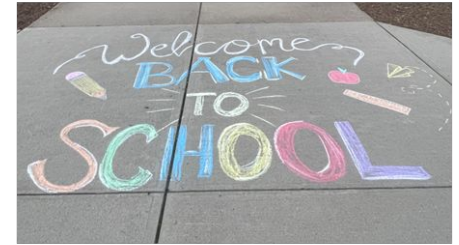 Welcome
BACK
TO
SCHOOL